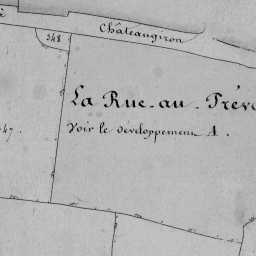 Châteaugiron
348
La Rue-au-
Voir le développement A.
47.